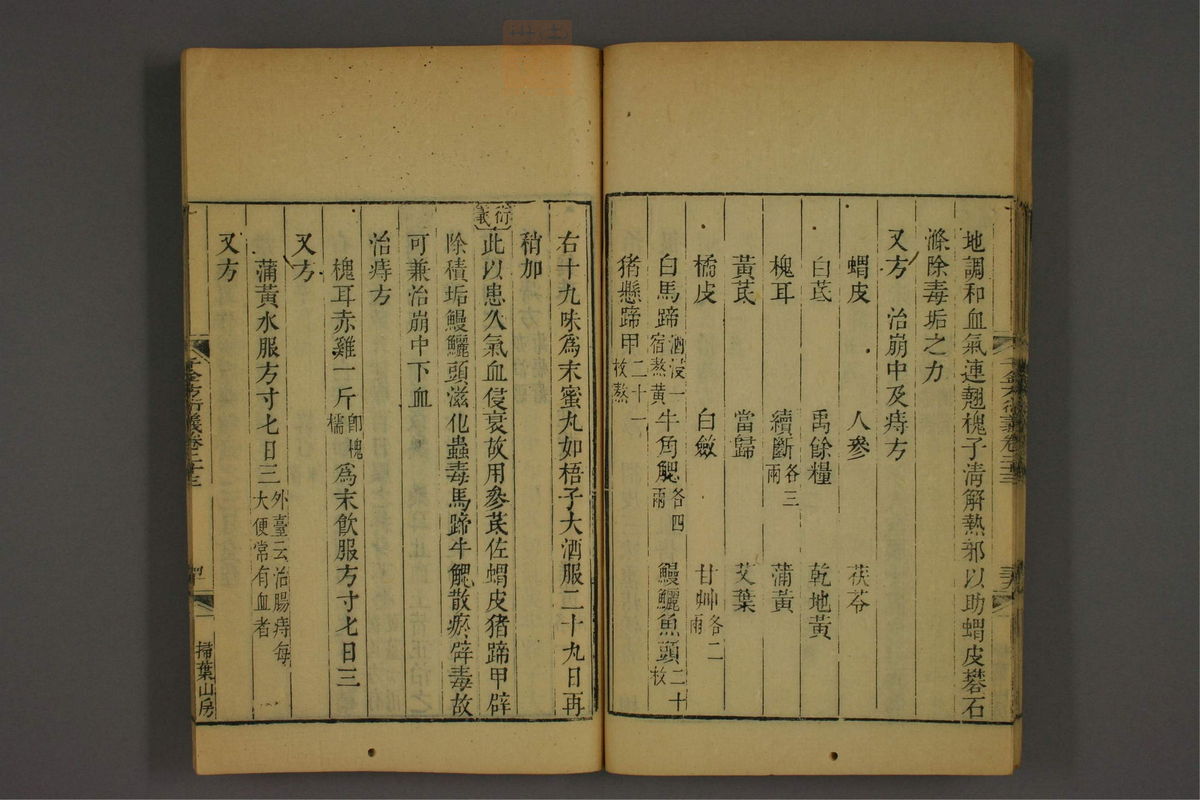 地調和血氣連翹槐子淸解熱邪以助蝟皮礬石
滌除毒垢之力
又方　治崩中及痔方
蝟皮　人參　茯苓
白芷　禹餘糧　乾地黃
槐耳　續斷各三兩　蒲黃
黃芪　當歸　艾葉
橘皮　白斂　甘艸各二兩
白馬蹄酒浸一宿熬黃　牛角䚡各四兩　鰻鱺魚頭二十枚
猪懸蹄甲二十一枚熬
右十九味爲末蜜丸如梧子大酒服二十九日再
稍加
衍義
此以患久氣血侵衰故用參芪佐蝟皮猪蹄甲辟
除積垢鰻鱺頭滋化蟲毒馬蹄牛䚡散瘀辟毒故
可兼治崩中下血
治痔方
槐耳赤雞一斤卽槐檽爲末飮服方寸匕日三
又方
蒲黃水服方寸匕日三外臺云治腸痔每大便常有血者
又方
千金方衍義卷二十三
掃葉山房